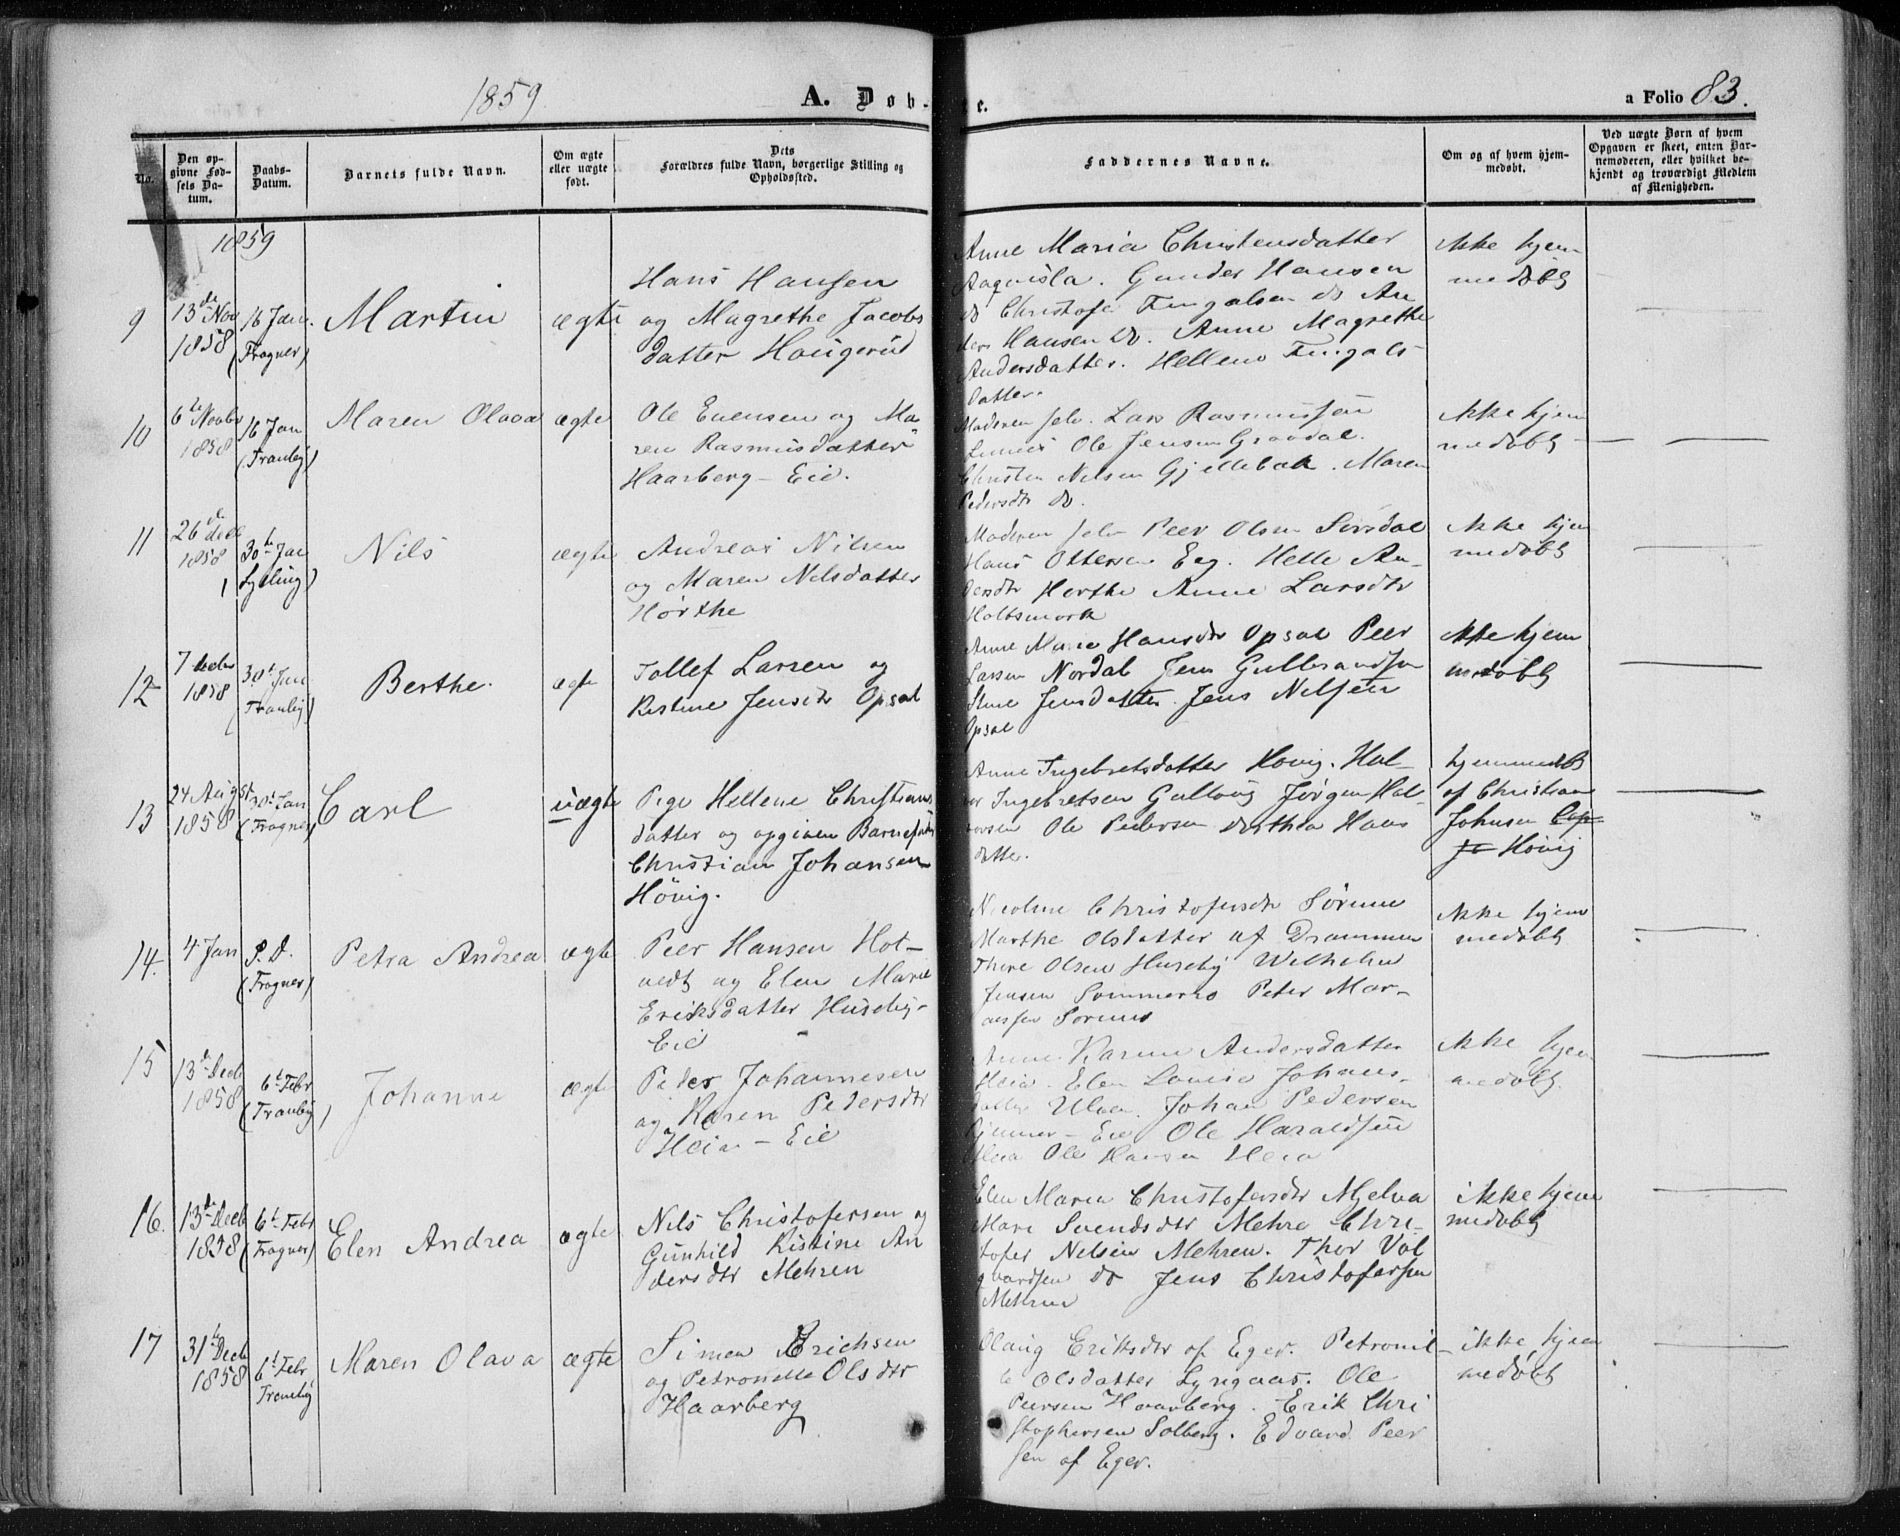 1859
A. Døb-
te.
a Folio 83.
No.
Den op-
givne Fød-
sels Da-
tum.
Daabs-
Datum.
Barnets fulde Navn.
Om ægte
eller uægte
født.
Dets
Forældres fulde Navn, borgerlige Stilling og
Opholdssted.
Faddernes Navne.
Om og af hvem hjem-
medøbt.
Ved uægte Børn af hvem
Opgaven er skeet, enten Bar-
nemoderen, eller hvilket be-
kjendt og troværdigt Medlem
af Menigheden.
1859
9
13de Nov
1858
16 Jan.
(Frogner)
Martin
ægte
Hans Hansen
og Magrethe Jacobs
datter Haugerud
Anne Maria Christensdatter
Gunder Hansen
do Christofe Fingalsen do An
ders Hansen do. Anne Magrethe
Andersdatter. Hellene Fingals
datter.
ikke hjem
medøbt
10
6te Novbr
1858
16 Jan
(Tranby)
Maren Olava
ægte
Ole Evensen og Ma-
ren Rasmusdatter
Haarberg-Eie.
Moderen selv. Lars Rasmussen
Ole Jensen Graadal.
Christen Nilsen Gjellebæk. Maren
Pedersdtr do
ikke hjem
medøbt
11
26de dec
1858
30te Jan
Sylling)
Nils
ægte
Andreas Nilsen
og Maren Nilsdatter
Hørthe
Moderen selv Peer Olsen Sørsdal
Hans Ottersen Eeg. Helle An-
dersdtr Hørthe Anne Larsdtr
Holtsmark
ikke hjem
medøbt
12
7 decbr
1858
30t Jan
(Tranby)
Berthe.
ægte
Tollef Larsen og
Kistine Jensdtr Opsal
Anne Marie Hansdtr Opsal Peer
Larsen Nordal Jens Gulbrandsen
Stine Jensdatter Jens Nilsen
Opsal
ikke hjem
medøbt
13
24 Augst
1858
30t Jan
(Frogner)
Carl
uægte
Pige Hellene Christians
datter og opgiven Barnefader
Christian Johansen
Høvig.
Anne Ingebretsdatter Høvig. Hal-
vor Ingebretsen Gullaug Jørgen Hal-
vorsen Ole Pedersen Dorthea Hans
datter.
hjemmedøbt
af Christian
Johnsen
Høvig
14.
4 Jan
S. D.
(Frogner)
Petra Andrea
ægte
Peer Hansen Hot-
vedt og Elen Marie
Eriksdatter Huseby-
Eie
Nicoline Christofersdtr Sørum
Marthe Olsdatter af Drammen
Thore Olsen Huseby Wilhelm
Jensen Sommerro Peter Mar-
Sørum
ikke hjem
medøbt
15
13de Decb
1858
6t Febr
(Tranby)
Johanne
ægte
Peder Johannesen
og Karen Pedersdtr
Heia-Eie
Anne Karine Andersdatter
Heia. Elen Lovise Johans-
datter Ulven. Johan Pedersen
Gjemner-Eie Ole Haraldsen
Heia Ole Hansen Heia
ikke hjem
medøbt
16.
13de Decb
1858
6t Febr
(Frogner)
Elen Andrea
ægte
Nils Christofersen og
Gunhild Kistine An
dersdtr Mehren
Elen Maria Christofersdtr Mjelva
Mari Svendsdtr Mehre Chri-
stofer Nelsen Mehren. Thor Vol
qvardsen do Jens Christofersen
Mehren
ikke hjem
medøbt
17
31te Decb
1858
6t Febr
Tranby
Maren Olava
ægte
Simen Erichsen
og Petronelle Olsdtr
Haarberg
Olaug Eriksdtr af Eger. Petronil-
le Olsdatter Lyngaas. Ole
Peersen Haarberg. Erik Chri
stophersen Solberg. Edvard Peer
sen af Eger.
ikke hjem
medøbt